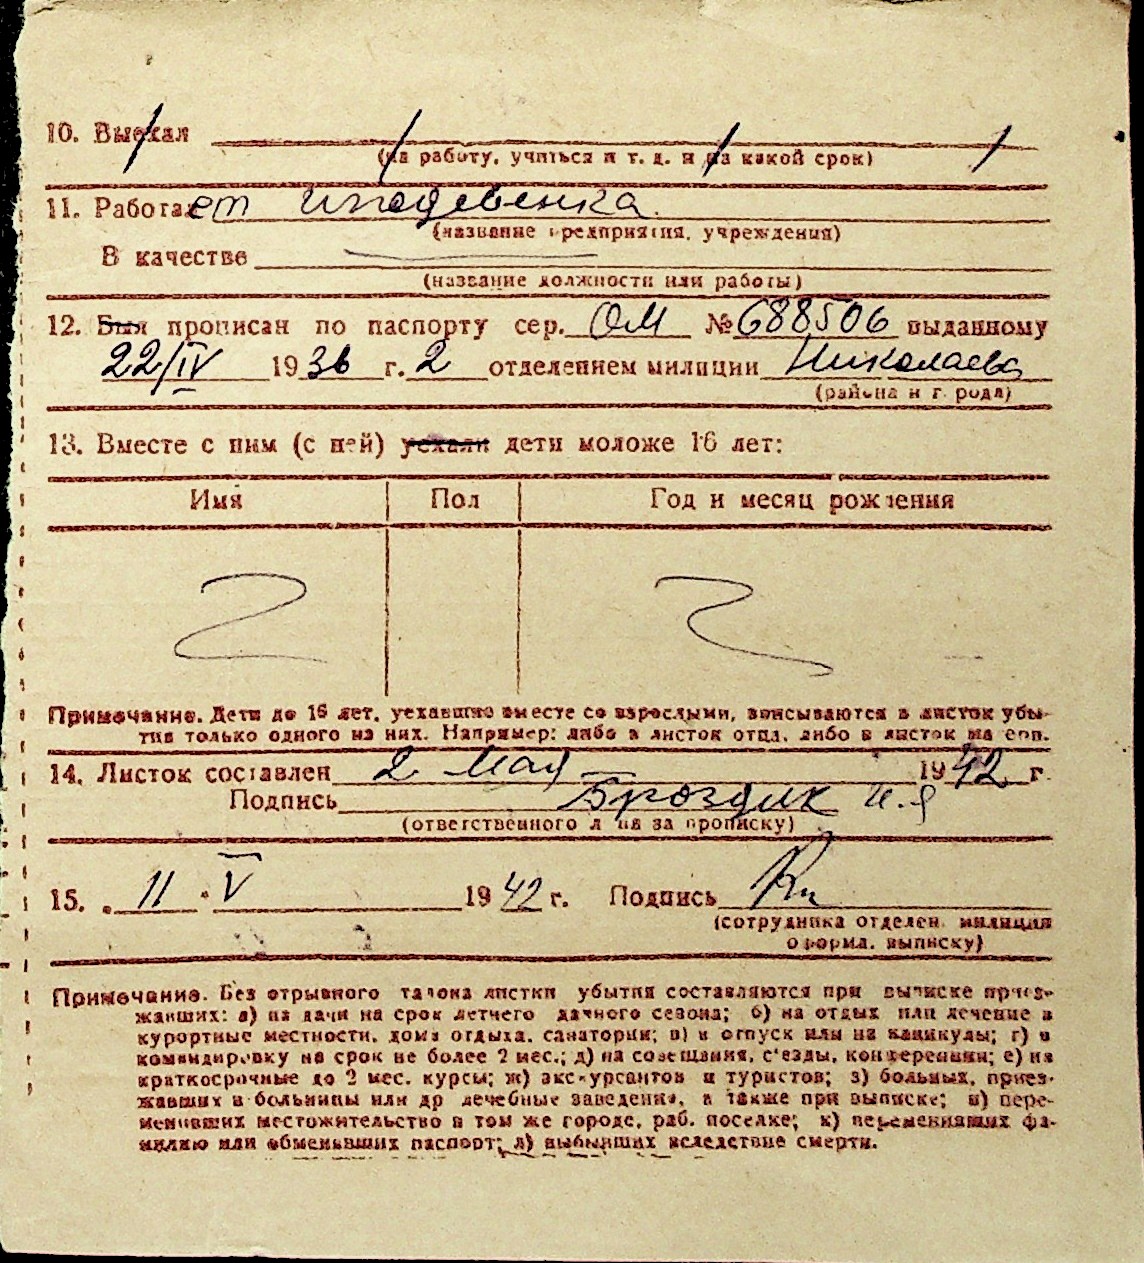 10. Выехал
(на работу, учиться и т. д. и на какой срок)
11. Работает иждевенка.
(название предприятия, учреждения)
В качестве
(название должности или работы)
12. Был прописан по паспорту сер. ОМ № 688506 выданному
22/IV 1936 г. 2 отделением милиции Николаева
(района и города)
13. Вместе с ним (с ней) уехали дети моложе 16 лет:
Имя Пол Год и месяц рождения
Примечание. Дети до 16 лет, уехавшие вместе со взрослыми, вписываются в листок убы-
тия только одного из них. Например: либо в листок отца, либо в листок матери.
14. Листок составлен 2 Мая 1942 г.
Подпись Броздик И.Я
(ответственного лица за прописку)
15. 11 V 1942 г. Подпись
(сотрудника отделен. милиции
оформл. выписку)
Примечание. Без отрывного талона листки убытия составляются при выписке приез-
жавших: а) на дачи на срок летнего дачного сезона; б) на отдых или лечение в
курортные местности, дома отдыха, санатории; в) в отпуск или на каникулы; г) в
командировку на срок не более 2 мес.; д) на совещания, съезды, конференции; е) на
краткосрочные до 2 мес. курсы; ж) экскурсантов и туристов; з) больных, приез-
жавших в больницы или др лечебные заведения, а также при выписке; и) пере-
менивших местожительство в том же городе, раб. поселке; к) переменивших фа-
милию или обменявших паспорт; л) выбывших вследствие смерти.